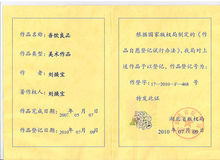 作品名称：吾饮良品
作品类型：美术作品
作者：刘焕宝
著作权人：刘焕宝
作品完成日期：2007. 05月 07日
作品登记日期：2010. 07月 09日
根据国家版权局制定的《作
品自愿登记试行办法》，我局对上
述作品予以登记，作品登记号为：
作登字：17—2010—F—468 号
特发此证
湖北省版权局
2010 年07 月09日